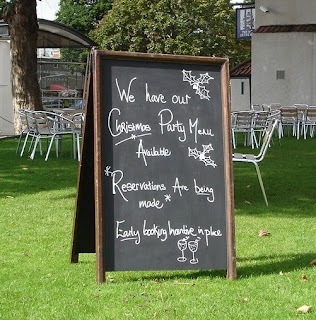 We have our
Christmas Party Menu
Available
*Reservations Are being
made*
Early booking incentive in place